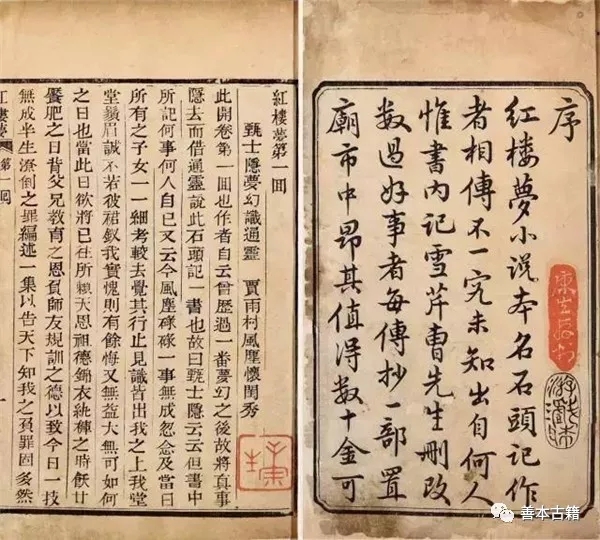 序
红楼夢小说本名石頭記作
者相傳不一究未知出自何人
惟書内記雪芹曹先生刪改
数過好事者每傳抄一部置
廟市中昂其值得数十金可
紅樓夢第一回
甄士隱夢幻識通靈 賈雨村風塵懷閨秀
此開卷第一回也作者自云曾歷過一番夢幻之後故將真事
隱去而借通靈說此石頭記一書也故曰甄士隱云云但書中
所記何事何人自己又云今風塵碌碌一事無成忽念及當日
所有之子女一一細考較去覺其行止見識皆出我之上我堂
堂鬚眉誠不若彼裙釵我實愧則有餘悔又無益大無可如何
之日也當此日欲將已往所賴天恩祖德錦衣紈袴之時飫甘
饜肥之日背父兄教育之恩負師友規訓之德以致今日一技
無成半生潦倒之罪編述一集以告天下知我之負罪固多然
紅樓夢 第一回 一
善本古籍